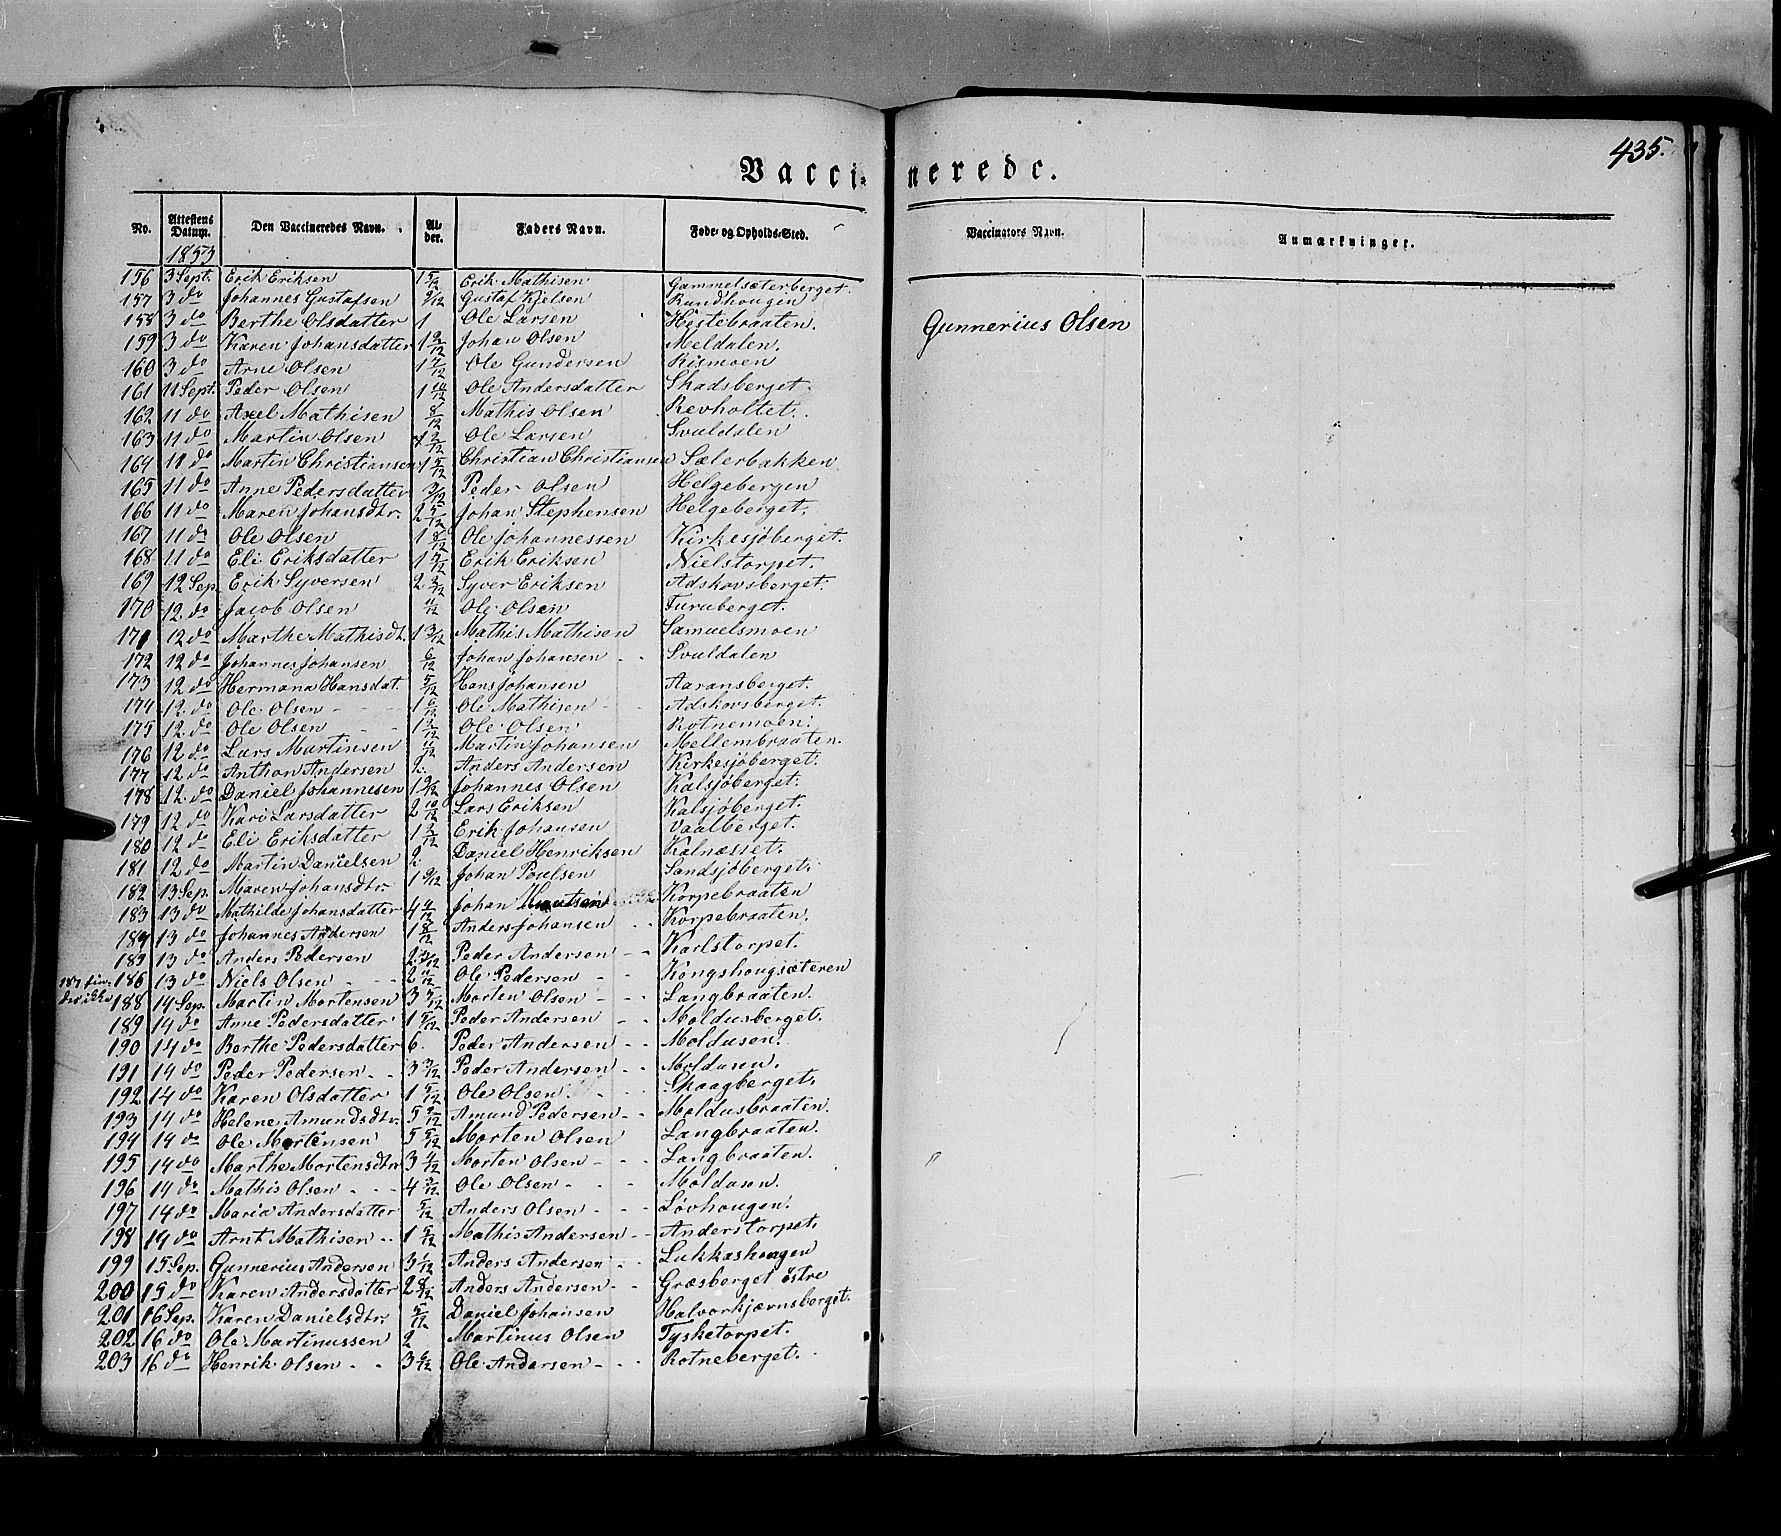 435.
Vaccinerede.
No. Attestens Datum. Den Vaccineredes Navn. Alder. Faders Navn. Føde- og Opholds-Sted. Vaccinators Navn. Anmærkninger.
1853
156 3 Sept. Erik Eriksen 1 5/12 Erik Mathisen Gammelsæterberget.
157 3 do Johannes Gustafsen 9/12 Gustaf Kjelsen Rundhougen
158 3 do Berthe Olsdatter 1 Ole Larsen Hestebraaten. Gunnerius Olsen
159 3 do Karen Johansdatter 1 2/12 Johan Olsen Meldalen.
160 3 do Arne Olsen 1 7/12 Ole Gundersen Rismoen
161 11 Sept. Peder Olsen 1 10/12 Ole Andersdatter Skadsberget.
162 11 do Axel Mathisen 8/12 Mathis Olsen Revholtet.
163 11 do Martin Olsen 2/12 Ole Larsen Svuldalen
164 11 do Martin Christiansen 1 5/12 Christian Christiansen Sæterbakken
165 11 do Anne Pedersdatter 3/12 Peder Olsen Helgebergen
166 11 do Maren Johansdtr. 2 5/12 Johan Stephensen Helgeberget.
167 11 do Ole Olsen 1 8/12 Ole Johannessen Kirkesjøberget.
168 11 do Eli Eriksdatter 1 5/12 Erik Eriksen Nielstorpet.
169 12 Sep. Erik Syversen 2 2/12 Syver Eriksen Adskovsberget.
170 12 do Jacob Olsen 11/12 Ole Olsen Furuberget.
171 12 do Marthe Mathisdt. 1 3/12 Mathis Mathisen Samuelsmoen
172 12 do Johannes Johansen 6/12 Johan Johansen - - Svuldalen
173 12 do Hermana Hansdat. 5/12 Hans Johansen Aaransberget.
174 12 do Ole Olsen - - - 1 6/12 Ole Mathisen - - Adskovsberget.
175 12 do Ole Olsen - - 1 2/12 Ole Olsen Rotnemoen.
176 12 do Lars Martinsen 11/12 Martin Johansen Mellembraaten.
177 12 do Anthon Andersen 2. Anders Andersen Kirkesjøberget.
178 12 do Daniel Johannesen 1 9/12 Johannes Olsen Kalsjøberget.
179 12 do Kari Larsdatter 2 10/12 Lars Eriksen Kalsjøberget.
180 12 do Eli Eriksdatter 1 2/12 Erik Johansen Vaalberget.
181 12 do Martin Danielsen 2 Daniel Henriksen Kalnæsset.
182 13 Sep. Maren Johansdtr. 1 9/12 Johan Poulsen Sandsjøberget.
183 13 do Mathilde Johansdatter 4 4/12 Johan Knutsen Korpebraaten
184 13 do Johannes Andersen 1 8/12 Anders Johansen - - Korpebraaten.
185 13 do Anders Pedersen Peder Andersen - - Karlstorpet.
186 13 do Niels Olsen - - 2 11/12 Ole Pedersen - - Kongshougsæteren
187 findes ikke
188 14 Sep. Martin Mortensen 3 7/12 Morten Olsen - - - Langbraaten.
189 14 do Anne Pedersdatter 1 5/12 Peder Andersen - - Moldusberget.
190 14 do Berthe Pedersdatter 6. Peder Andersen - - Moldusen.
191 14 do Peder Pedersen. - - 3 3/12 Peder Andersen - - Moldusen.
192 14 do Karen Olsdatter 1 5/12 Ole Olsen. - - - Skaagberget.
193 14 do Helene Amundsdtr. 5 9/12 Amund Pedersen - - Moldusbraaten.
194 14 do Ole Mortensen 5 5/12 Morten Olsen Langbraaten.
195 14 do Marthe Mortensdtr 3 4/12 Morten Olsen - - - Langbraaten.
196 14 do Mathis Olsen - - - 4 3/12 Ole Olsen - - - Moldusen.
197 14 do Maria Andersdatter 5/12 Anders Olsen - - - Løvhougen.
198 14 do Arnt Mathisen - - 1 5/12 Mathis Andersen - - Anderstorpet.
199 15 Sep. Gunnerius Andersen 3 1/12 Anders Andersen - - Lukkashougen
200 15 do Karen Andersdatter 2 8/12 Anders Andersen - - Græsberget østre
201 16 Sep. Karen Danielsdtr. 5/12 Daniel Johansen Halvorkjærnsberget.
202 16 do Ole Martinussen 2 Martinus Olsen Tysketorpet.
203 16 do Henrik Olsen - - 3 6/12 Ole Andersen - - - Rotneberget.